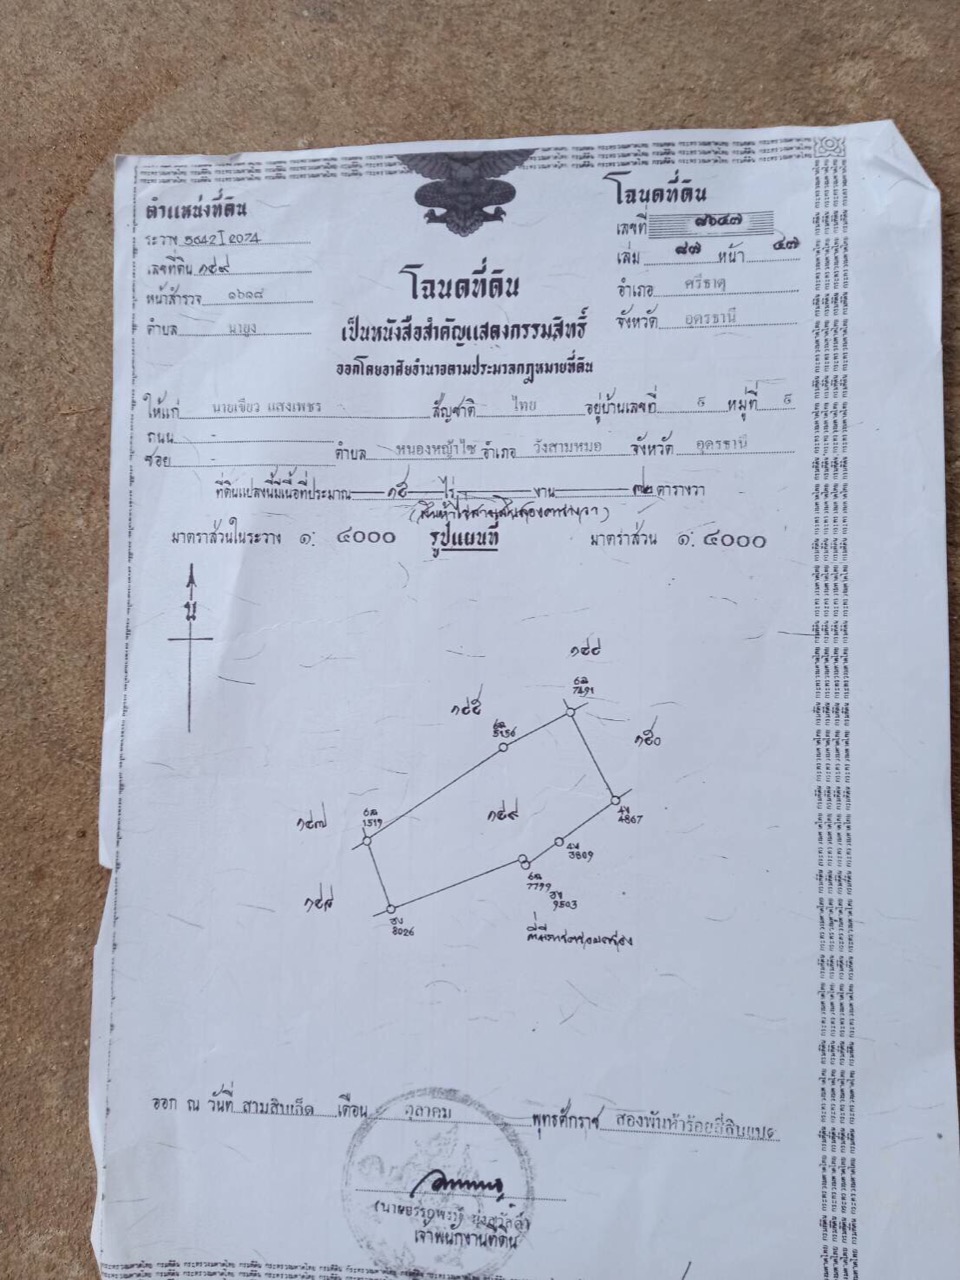 ตำแหน่งที่ดิน
ระวาง 5642 I 2074
เลขที่ดิน ๑๔๙
หน้าสำรวจ ๑๖๑๘
ตำบล นายูง
โฉนดที่ดิน
เลขที่ ๘๖๔๗
เล่ม ๘๗ หน้า ๔๗
อำเภอ ศรีธาตุ
จังหวัด อุดรธานี
โฉนดที่ดิน
เป็นหนังสือสำคัญแสดงกรรมสิทธิ์
ออกโดยอาศัยอำนาจตามประมวลกฎหมายที่ดิน
ให้แก่ นายเขียว แสงเพชร สัญชาติ ไทย อยู่บ้านเลขที่ ๕ หมู่ที่ ๕
ถนน -
ซอย - ตำบล หนองหญ้าไซ อำเภอ วังสามหมอ จังหวัด อุดรธานี
ที่ดินแปลงนี้มีเนื้อที่ประมาณ ๑๕ ไร่ งาน ๓๒ ตารางวา
(สิบห้าไร่สามสิบสองตารางวา)
มาตราส่วนในระวาง ๑: ๔๐๐๐ รูปแผนที่ มาตราส่วน ๑: ๔๐๐๐
น
๑๔๕
7491
5156
๑๕๐
๑๔๗
1519
๑๔๙
4867
3809
7799
9503
๑๔๘
8026
ออก ณ วันที่ สามสิบเอ็ด เดือน ตุลาคม พุทธศักราช สองพันห้าร้อยสี่สิบแปด
เจ้าพนักงานที่ดิน